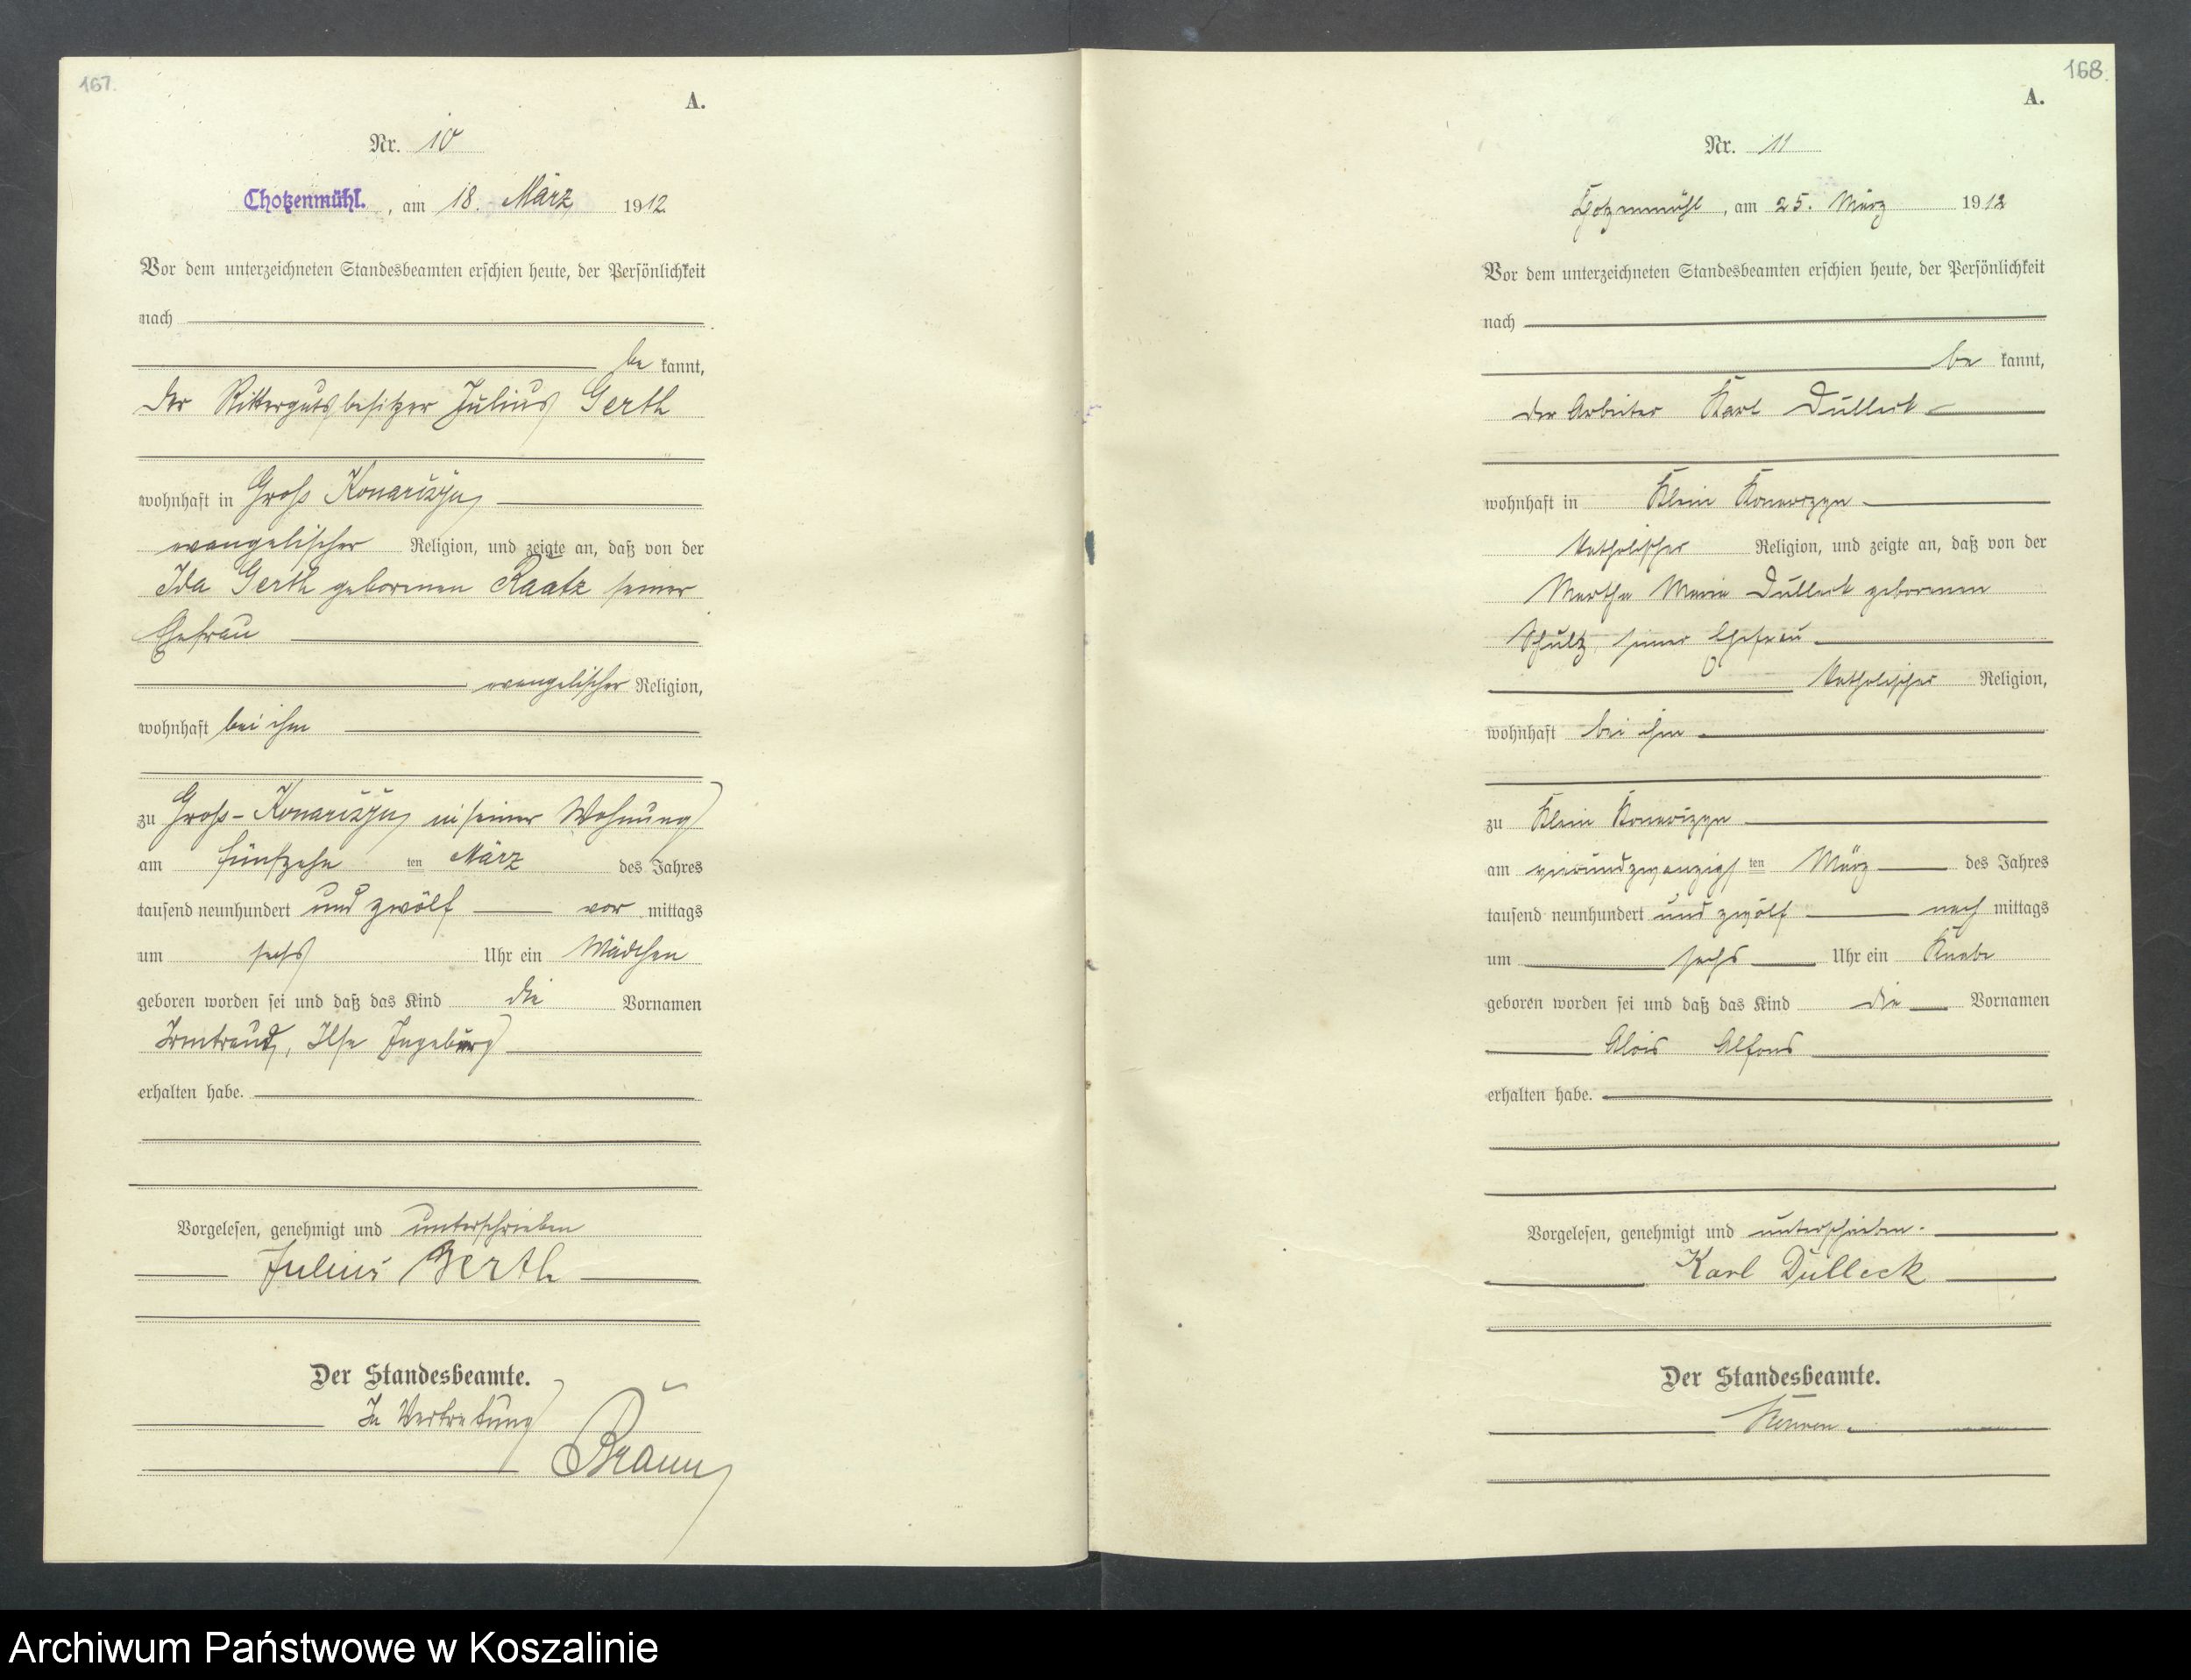 167.
A.
Nr. 10
Chotzenmühl., am 18. März 1912
Vor dem unterzeichneten Standesbeamten erschien heute, der Persönlichkeit
nach
be kannt,
der Rittergutsbesitzer Julius Gerth
wohnhaft in Gross Konarczyn
evangelischer Religion, und zeigte an, daß von der
Ida Gerth geborenen Raatz seiner
Ehefrau
evangelischer Religion,
wohnhaft bei ihm
zu Gross-Konarczyn in seiner Wohnung
am fünfzehn ten März des Jahres
tausend neunhundert und zwölf vor mittags
um sechs Uhr ein Mädchen
geboren worden sei und daß das Kind die Vornamen
Irmtraud, Ilse Ingeburg
erhalten habe.
Vorgelesen, genehmigt und unterschrieben
Julius Gerth
Der Standesbeamte.
In Vertretung
Braun
168.
A.
Nr. 11
Chotzenmühl, am 25. März 1912
Vor dem unterzeichneten Standesbeamten erschien heute, der Persönlichkeit
nach
be kannt,
der Arbeiter Karl Dulleck
wohnhaft in Klein Konarczyn
katholischer Religion, und zeigte an, daß von der
Martha Maria Dulleck geborenen
Schultz, seiner Ehefrau
katholischer Religion,
wohnhaft bei ihm
zu Klein Konarczyn
am vierundzwanzigs ten März des Jahres
tausend neunhundert und zwölf nach mittags
um sechs Uhr ein Knabe
geboren worden sei und daß das Kind die Vornamen
Alois Alfons
erhalten habe.
Vorgelesen, genehmigt und unterschrieben.
Karl Dulleck
Der Standesbeamte.
Archiwum Państwowe w Koszalinie